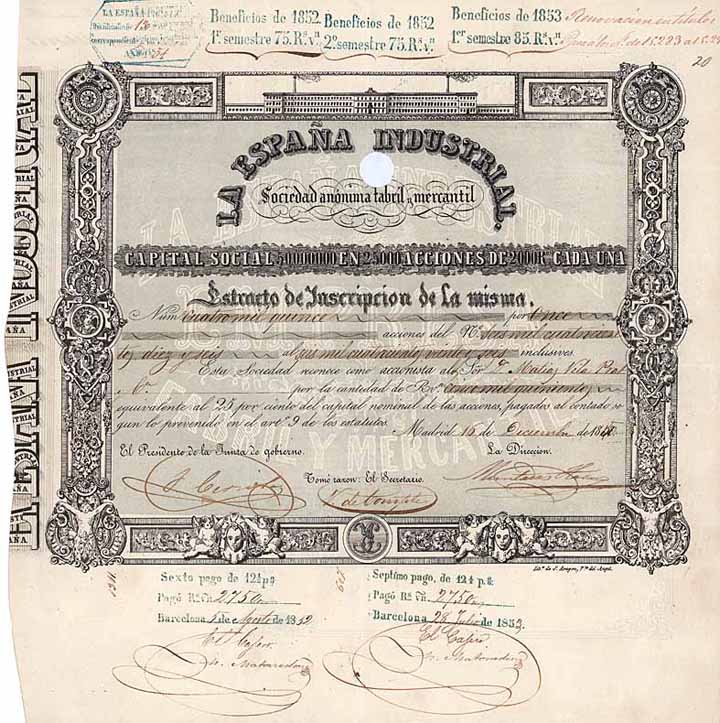 LA ESPAÑA
Beneficios de 1852.
1er semestre 75. Rs. vn.
Beneficios de 1852
2º semestre 75. Rs. vn.
Beneficios de 1853
1er semestre 85. Rs. vn.
Renovacion en títulos
20
LA ESPAÑA INDUSTRIAL.
Sociedad anónima fabril y mercantil
CAPITAL SOCIAL 50000000 EN 25000 ACCIONES DE 2000 R. CADA UNA
Estracto de Inscripcion de la misma.
Núm. cuatro mil quince por once
acciones del Nº. tres mil cuatrocien
tos diez y seis al tres mil cuatrocientos veinte y seis inclusives.
Esta Sociedad reconoce como accionista al Sor. Dn. Matias Vila Prat
y Cª. por la cantidad de Rvn. cinco mil quinientos
equivalente al 25 por ciento del capital nominal de las acciones, pagados al contado se
gun lo prevenido en el artº 9 de los estatutos. Madrid 15 de Diciembre de 184
El Presidente de la Junta de gobierno.
Tomé razon: El Secretario.
La Direccion.
LA ESPAÑA INDUSTRIAL
FABRIL Y MERCANTIL
Sexto pago de 12½ p%
Pagó Rs. vn. 2750
Barcelona 1 de Agosto de 1852
El Cajero
Septimo pago, de 12½ p.%
Pagó Rs. vn. 2750
Barcelona 28 Julio de 1853.
El Cajero